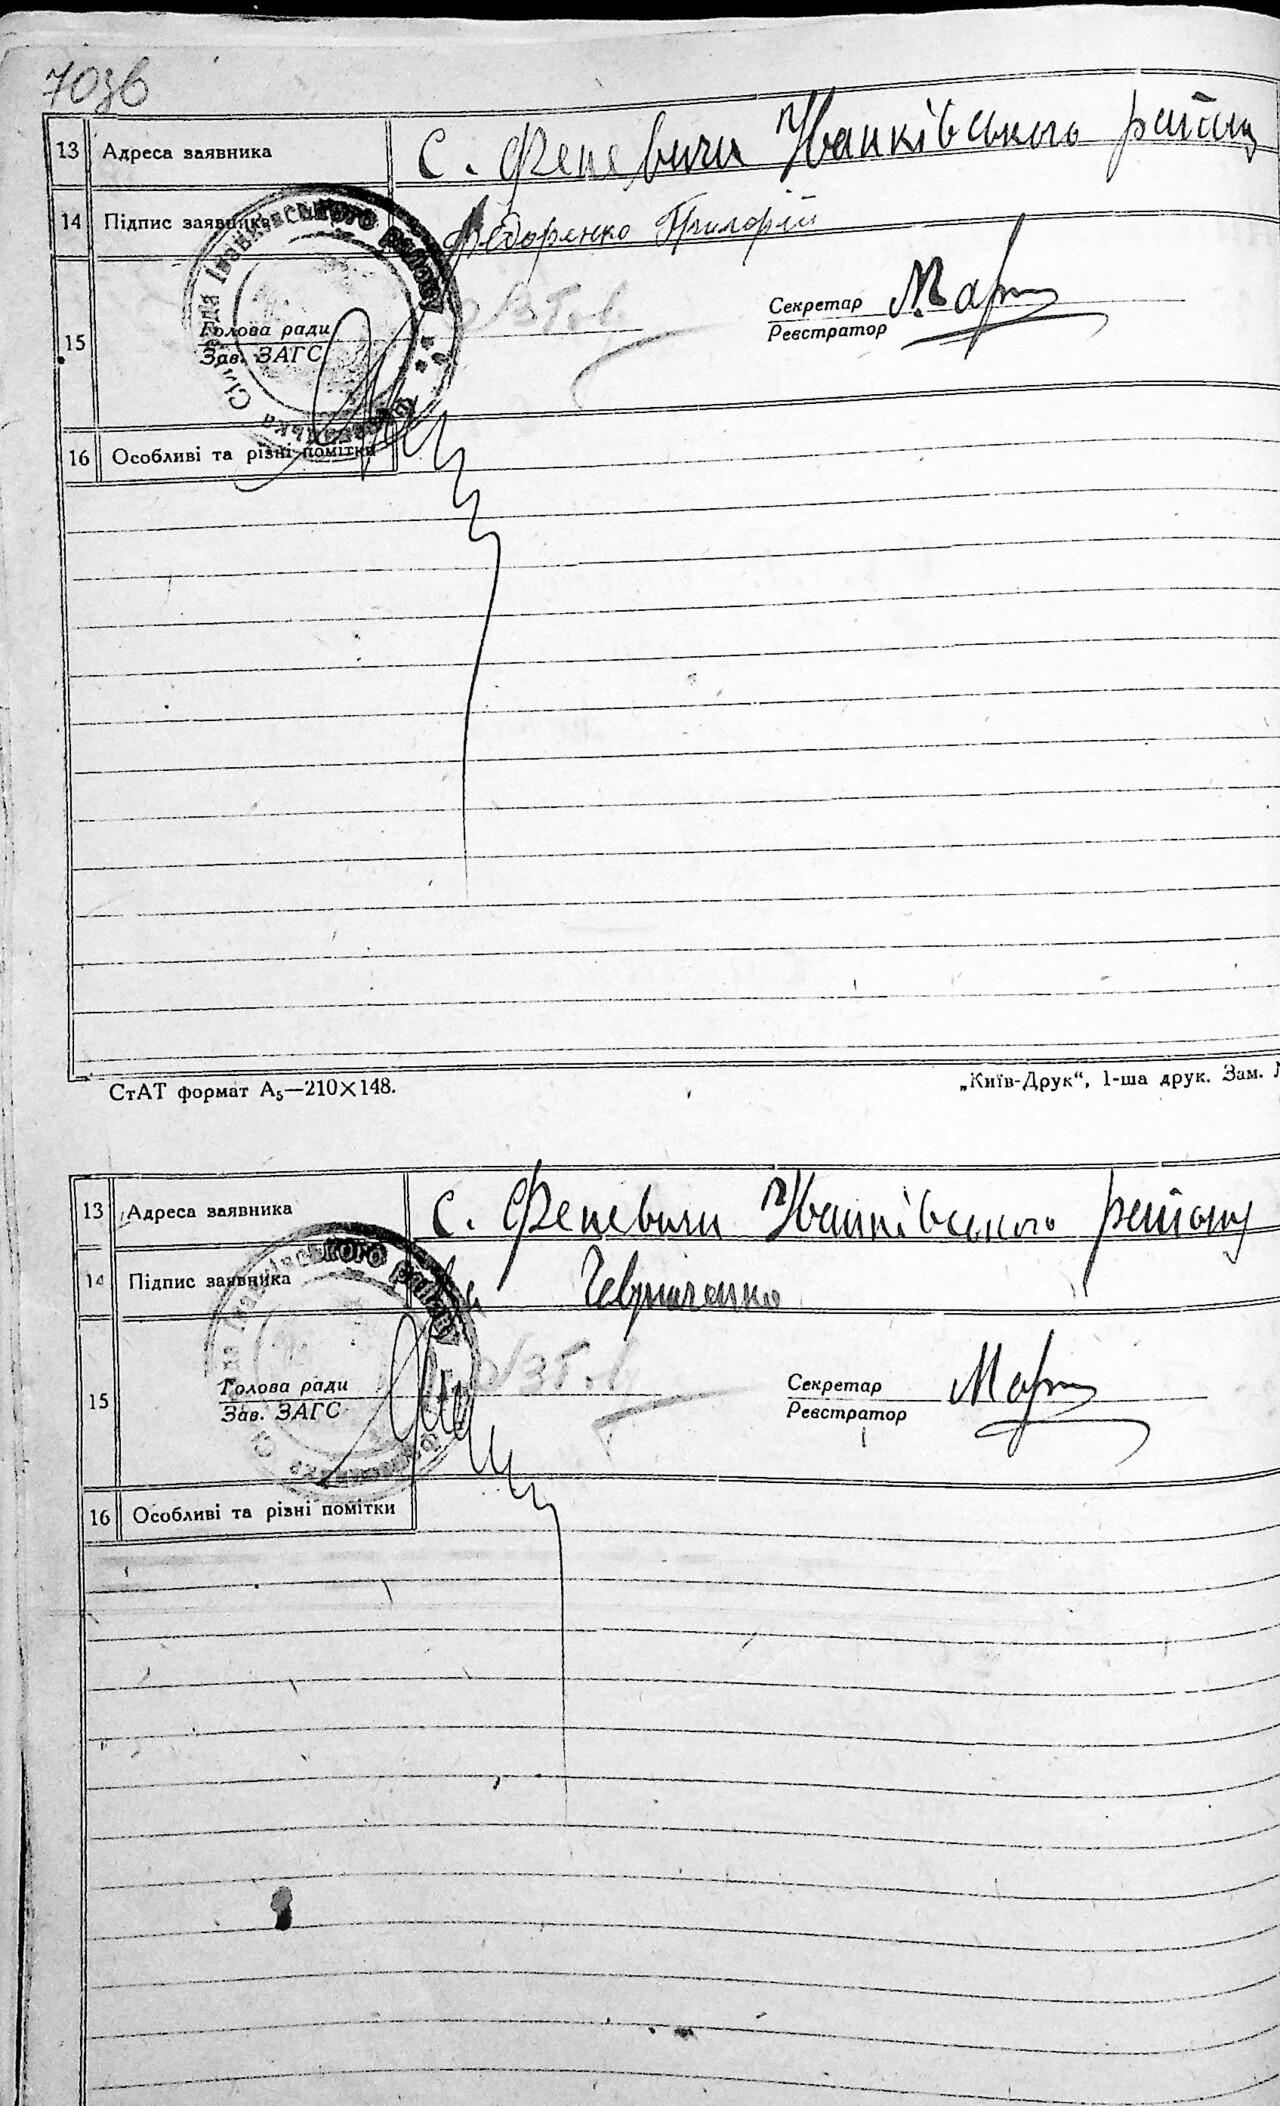 70зв
13 Адреса заявника с. Феневичи Иванківського району
14 Підпис заявника Федоренко Григорій
Сільрада Іванківського району Феневицька
15 Голова ради Секретар Мар
Зав. ЗАГС Реєстратор
16 Особливі та різні помітки
СтАТ формат А₅—210×148. „Київ-Друк“, 1-ша друк. Зам. №
13 Адреса заявника с. Феневичи Иванківського району
14 Підпис заявника
Іванківського району
15 Голова ради Секретар Мар
Зав. ЗАГС Реєстратор
16 Особливі та різні помітки